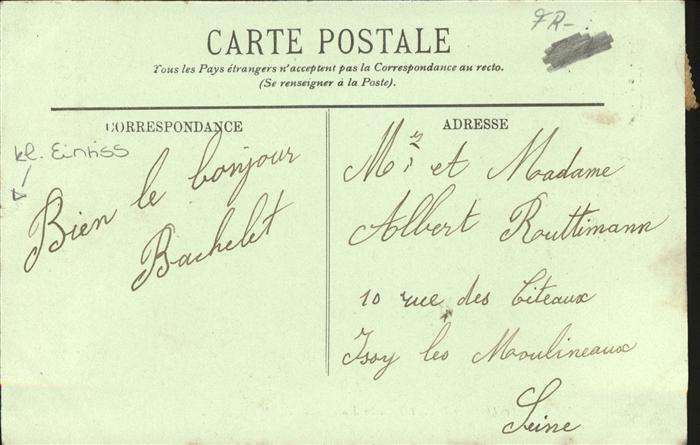 CARTE POSTALE
Tous les Pays étrangers n'acceptent pas la Correspondance au recto.
(Se renseigner à la Poste).
FR-
CORRESPONDANCE
kl. Einriss
Bien le bonjour
Bachelet
ADRESSE
Mr et Madame
Albert Routtimann
10 rue des Citeaux
Issy les Moulineaux
Seine